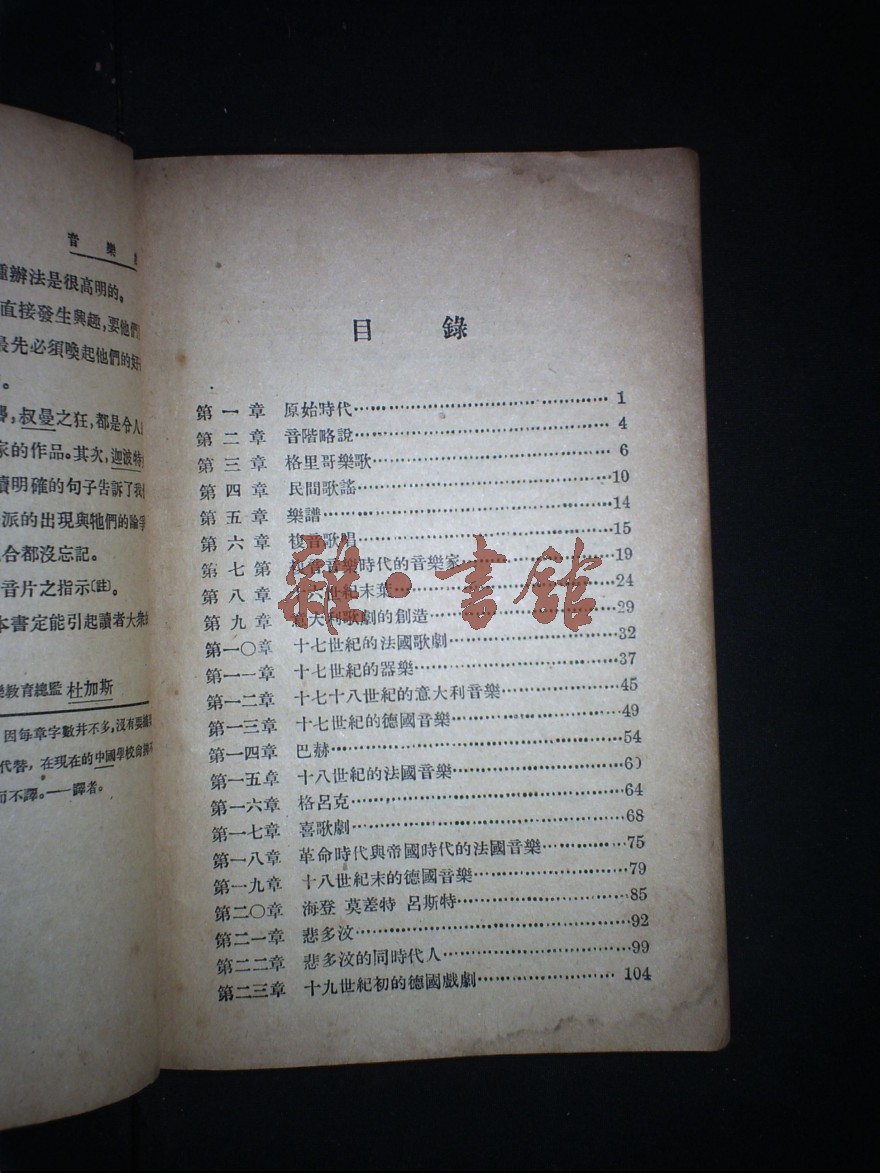 音樂
種辦法是很高明的。
直接發生興趣,要他們
最先必須喚起他們的好
。
,叔曼之狂,都是令人
家的作品。其次,迦波特
讀明確的句子告訴了我
派的出現與牠們的論爭
合都沒忘記。
音片之指示(註)。
本書定能引起讀者大衆
樂教育總監 杜加斯
因每章字數并不多,沒有要
代替,在現在的中國學校尙
而不譯。——譯者。
目錄
第一章 原始時代 1
第二章 音階略說 4
第三章 格里哥樂歌 6
第四章 民間歌謠 10
第五章 樂譜 14
第六章 複音歌唱 15
第七第 複音音樂時代的音樂家 19
第八章 十六世紀末葉 24
第九章 意大利歌劇的創造 29
第一〇章 十七世紀的法國歌劇 32
第一一章 十七世紀的器樂 37
第一二章 十七十八世紀的意大利音樂 45
第一三章 十七世紀的德國音樂 49
第一四章 巴赫 54
第一五章 十八世紀的法國音樂 60
第一六章 格呂克 64
第一七章 喜歌劇 68
第一八章 革命時代與帝國時代的法國音樂 75
第一九章 十八世紀末的德國音樂 79
第二〇章 海登 莫差特 呂斯特 85
第二一章 悲多汶 92
第二二章 悲多汶的同時代人 99
第二三章 十九世紀初的德國戲劇 104
雜·書館